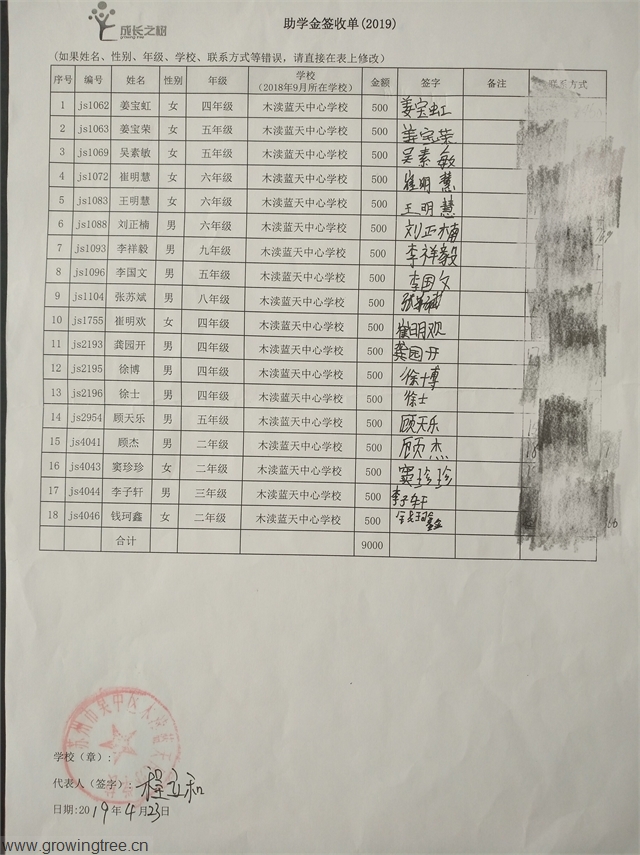 成长之树
growing tree
助学金签收单(2019)
(如果姓名、性别、年级、学校、联系方式等错误，请直接在表上修改)
序号 编号 姓名 性别 年级 学校 (2018年9月所在学校) 金额 签字 备注 联系方式
1 js1062 姜宝虹 女 四年级 木渎蓝天中心学校 500 姜宝虹
2 js1063 姜宝荣 女 五年级 木渎蓝天中心学校 500 姜宝荣
3 js1069 吴素敏 女 五年级 木渎蓝天中心学校 500 吴素敏
4 js1072 崔明慧 女 六年级 木渎蓝天中心学校 500 崔明慧
5 js1083 王明慧 女 六年级 木渎蓝天中心学校 500 王明慧
6 js1088 刘正楠 男 六年级 木渎蓝天中心学校 500 刘正楠
7 js1093 李祥毅 男 九年级 木渎蓝天中心学校 500 李祥毅
8 js1096 李国文 男 五年级 木渎蓝天中心学校 500 李国文
9 js1104 张苏斌 男 八年级 木渎蓝天中心学校 500 张苏斌
10 js1755 崔明欢 女 四年级 木渎蓝天中心学校 500 崔明欢
11 js2193 龚园开 男 四年级 木渎蓝天中心学校 500 龚园开
12 js2195 徐博 男 四年级 木渎蓝天中心学校 500 徐博
13 js2196 徐士 男 四年级 木渎蓝天中心学校 500 徐士
14 js2954 顾天乐 男 五年级 木渎蓝天中心学校 500 顾天乐
15 js4041 顾杰 男 二年级 木渎蓝天中心学校 500 顾杰
16 js4043 窦珍珍 女 二年级 木渎蓝天中心学校 500 窦珍珍
17 js4044 李子轩 男 三年级 木渎蓝天中心学校 500 李子轩
18 js4046 钱珂鑫 女 二年级 木渎蓝天中心学校 500 钱珂鑫
合计 9000
学校（章）:
代表人（签字）: 程立和
日期:2019年4月23日
www.growingtree.cn